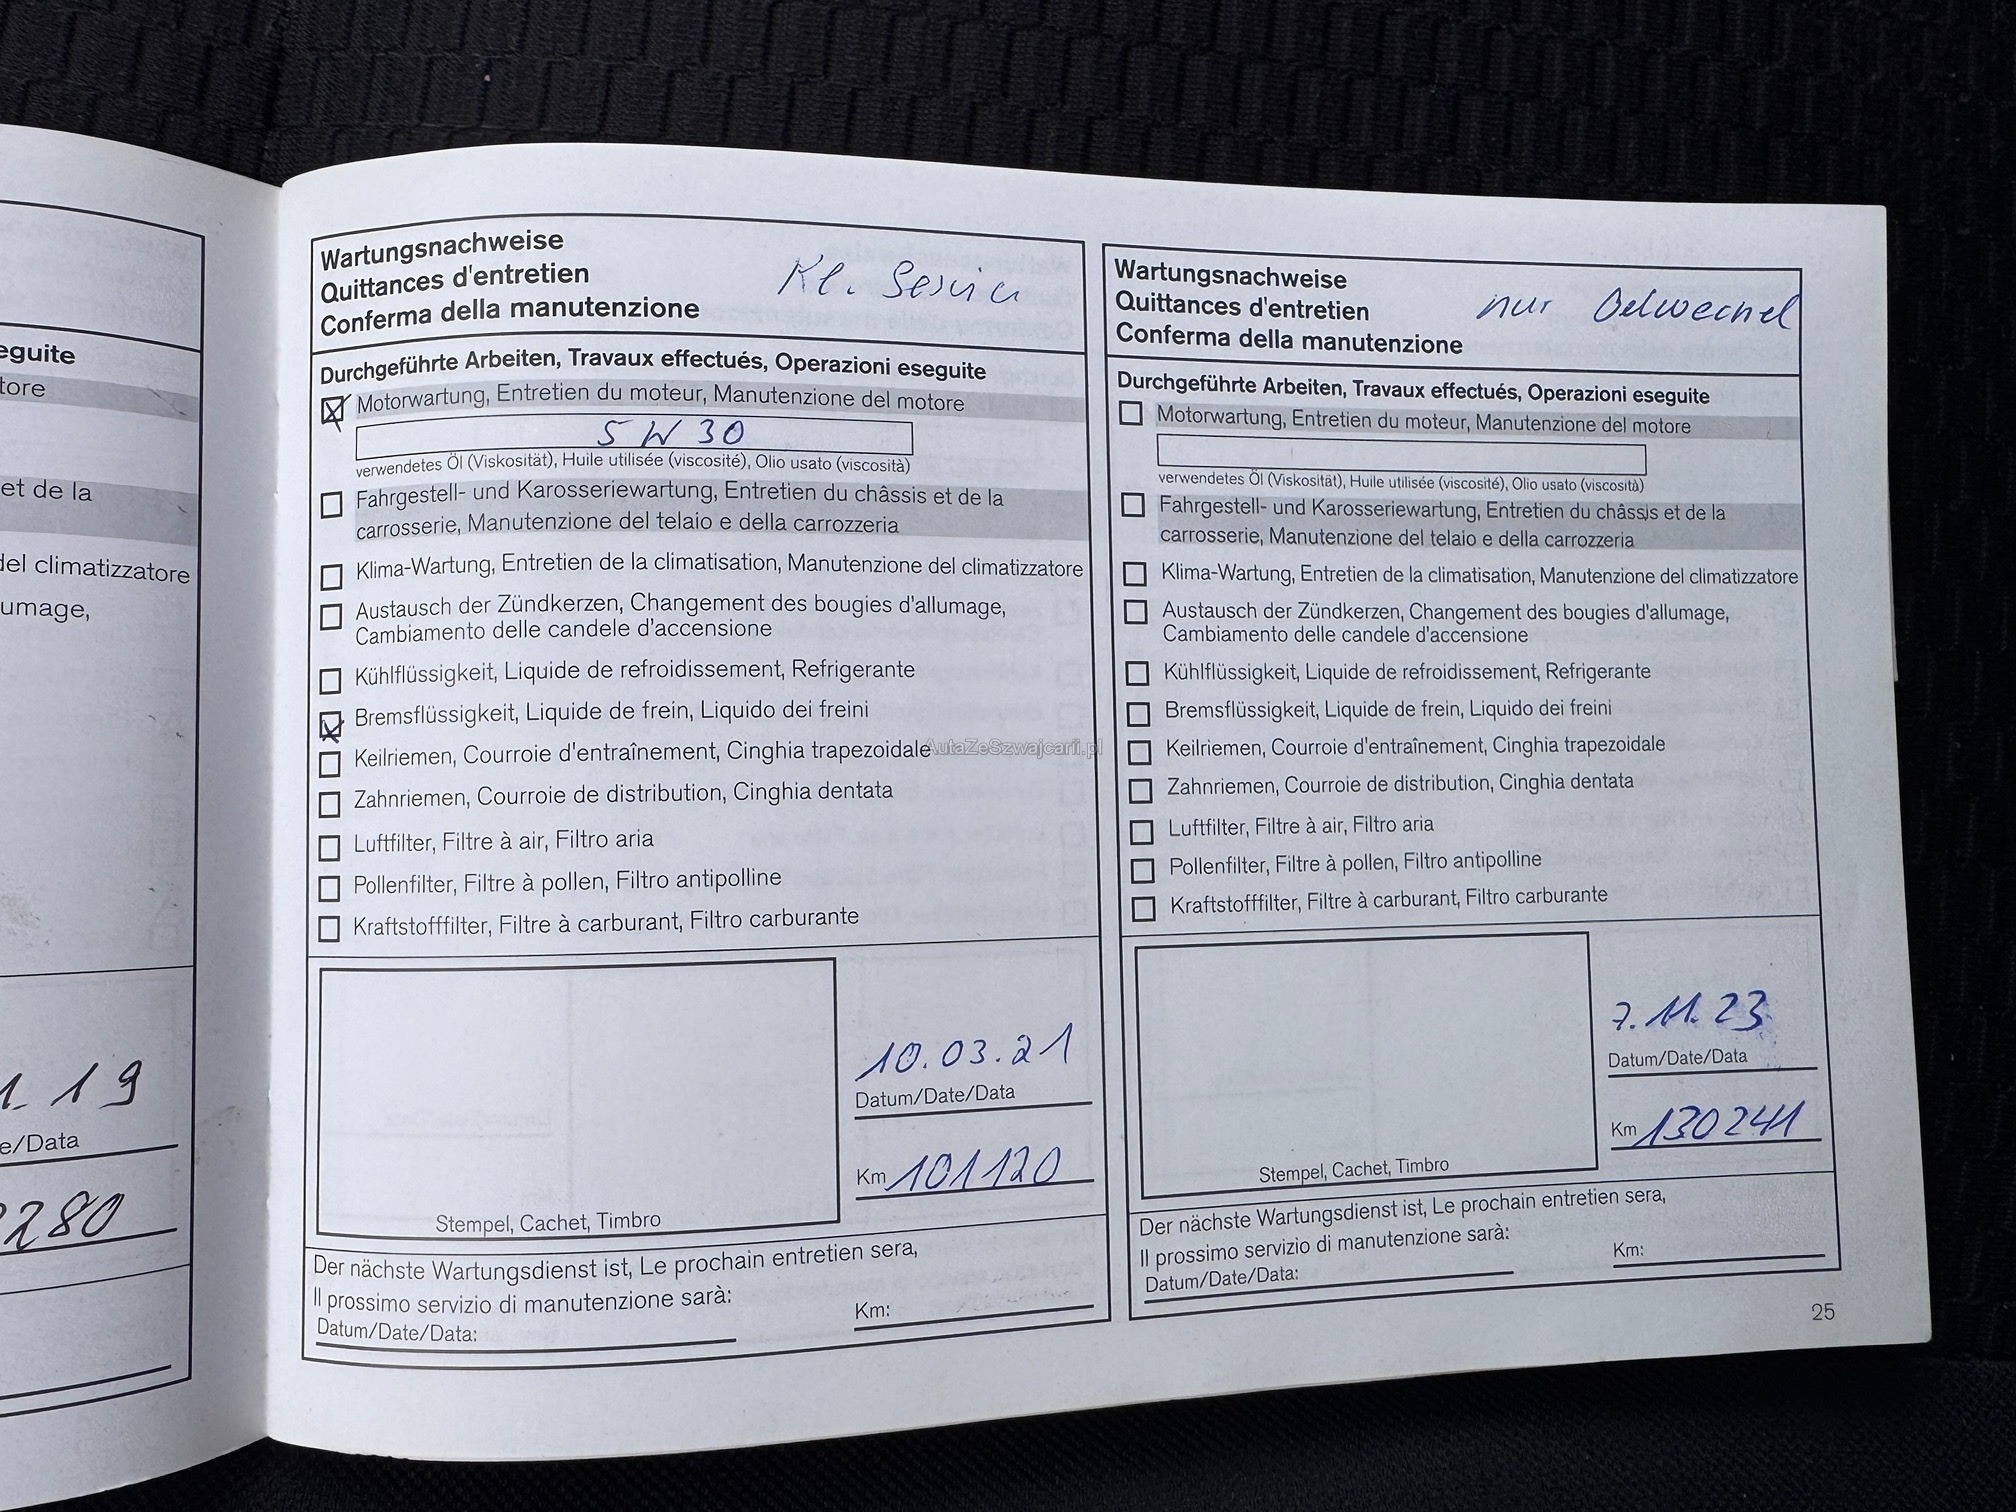 eguite
tore
et de la
del climatizzatore
umage,
1. 19
e/Data
2280
Wartungsnachweise
Quittances d'entretien
Conferma della manutenzione
Kl. Service
Durchgeführte Arbeiten, Travaux effectués, Operazioni eseguite
Motorwartung, Entretien du moteur, Manutenzione del motore
5 W 30
verwendetes Öl (Viskosität), Huile utilisée (viscosité), Olio usato (viscosità)
Fahrgestell- und Karosseriewartung, Entretien du châssis et de la
carrosserie, Manutenzione del telaio e della carrozzeria
Klima-Wartung, Entretien de la climatisation, Manutenzione del climatizzatore
Austausch der Zündkerzen, Changement des bougies d'allumage,
Cambiamento delle candele d'accensione
Kühlflüssigkeit, Liquide de refroidissement, Refrigerante
Bremsflüssigkeit, Liquide de frein, Liquido dei freini
Keilriemen, Courroie d'entraînement, Cinghia trapezoidale
Zahnriemen, Courroie de distribution, Cinghia dentata
Luftfilter, Filtre à air, Filtro aria
Pollenfilter, Filtre à pollen, Filtro antipolline
Kraftstofffilter, Filtre à carburant, Filtro carburante
10.03.21
Datum/Date/Data
Km 101120
Stempel, Cachet, Timbro
Der nächste Wartungsdienst ist, Le prochain entretien sera,
Il prossimo servizio di manutenzione sarà:
Datum/Date/Data:
Km:
Wartungsnachweise
Quittances d'entretien
Conferma della manutenzione
nur Oelwechsel
Durchgeführte Arbeiten, Travaux effectués, Operazioni eseguite
Motorwartung, Entretien du moteur, Manutenzione del motore
verwendetes Öl (Viskosität), Huile utilisée (viscosité), Olio usato (viscosità)
Fahrgestell- und Karosseriewartung, Entretien du châssis et de la
carrosserie, Manutenzione del telaio e della carrozzeria
Klima-Wartung, Entretien de la climatisation, Manutenzione del climatizzatore
Austausch der Zündkerzen, Changement des bougies d'allumage,
Cambiamento delle candele d'accensione
Kühlflüssigkeit, Liquide de refroidissement, Refrigerante
Bremsflüssigkeit, Liquide de frein, Liquido dei freini
Keilriemen, Courroie d'entraînement, Cinghia trapezoidale
Zahnriemen, Courroie de distribution, Cinghia dentata
Luftfilter, Filtre à air, Filtro aria
Pollenfilter, Filtre à pollen, Filtro antipolline
Kraftstofffilter, Filtre à carburant, Filtro carburante
7.11.23
Datum/Date/Data
Km 130241
Stempel, Cachet, Timbro
Der nächste Wartungsdienst ist, Le prochain entretien sera,
Il prossimo servizio di manutenzione sarà:
Datum/Date/Data:
Km:
25
AutaZeSzwajcarii.pl